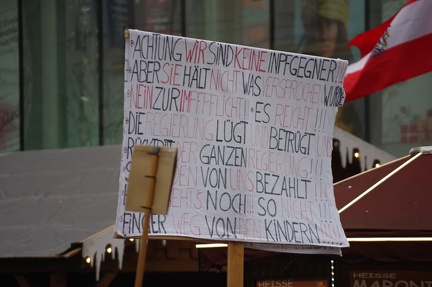 ACHTUNG WIR SIND KEINE INPFGEGNER!!
ABER SIE HÄLT NICHT WAS VERSPROCHEN WURDE
NEIN ZUR IMPFPFLICHT! ES REICHT!!!
DIE REGIERUNG LÜGT UND BETRÜGT
DER GANZEN REGIERUNG!!!
EN VON UNS BEZAHLT!!!
HTS NOCH... SO
FINGER WEG VON DEN KINDERN
HEISSE
HEISSE
MARONI